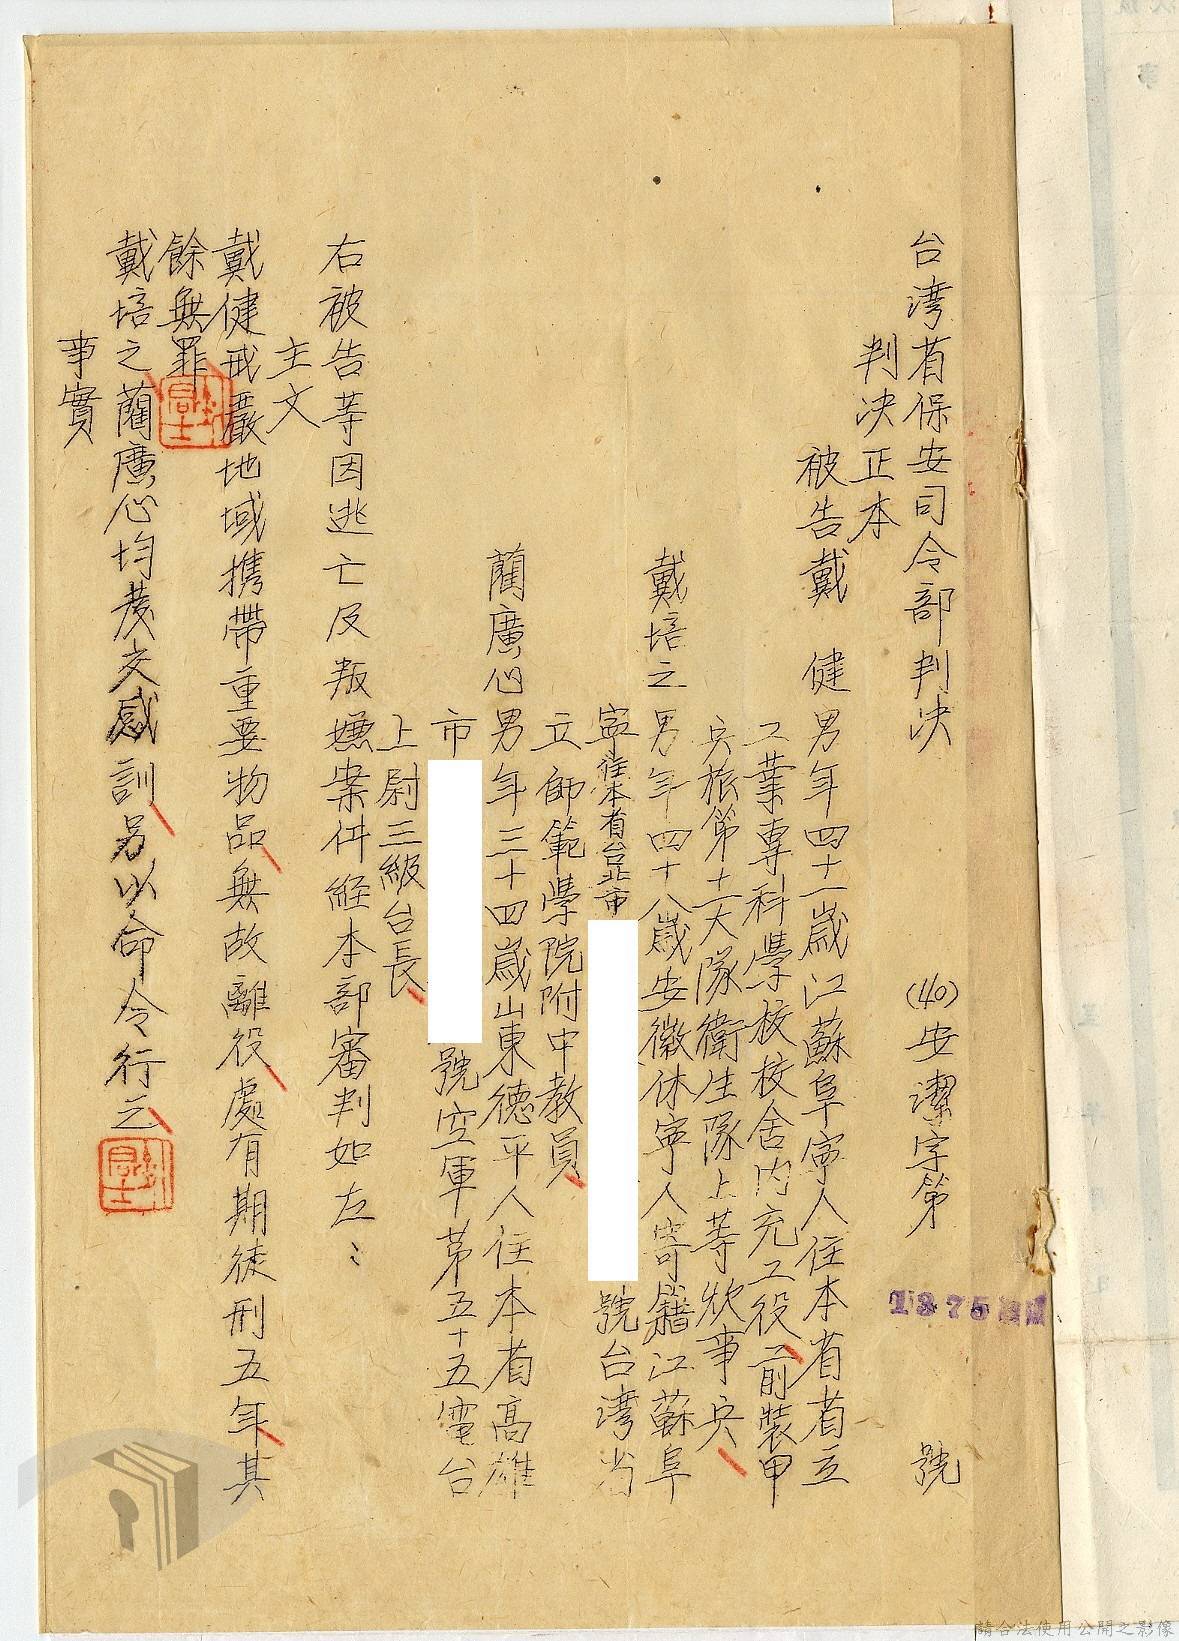 台湾省保安司令部判决
(40)安潔字第
1375
號
判决正本
被告戴 健男年四十一歲江蘇阜寧人住本省省立
工業專科學校校舍内充工役前装甲
兵旅第十一大隊衛生隊上等炊事兵
戴培之男年四十八歲安徽休寧人寄籍江蘇阜
寧住本省台北市 號台湾省
立師範學院附中教員
藺廣心男年三十四歲山東德平人住本省高雄
市 號空軍第五十五電台
上尉三級台長
右被告等因逃亡及叛嫌案件經本部審判如左：
主文
戴健戒嚴地域携帶重要物品無故離役處有期徒刑五年其
餘無罪
戴培之藺廣心均發交感訓另以命令行之
事實
請合法使用公開之影像